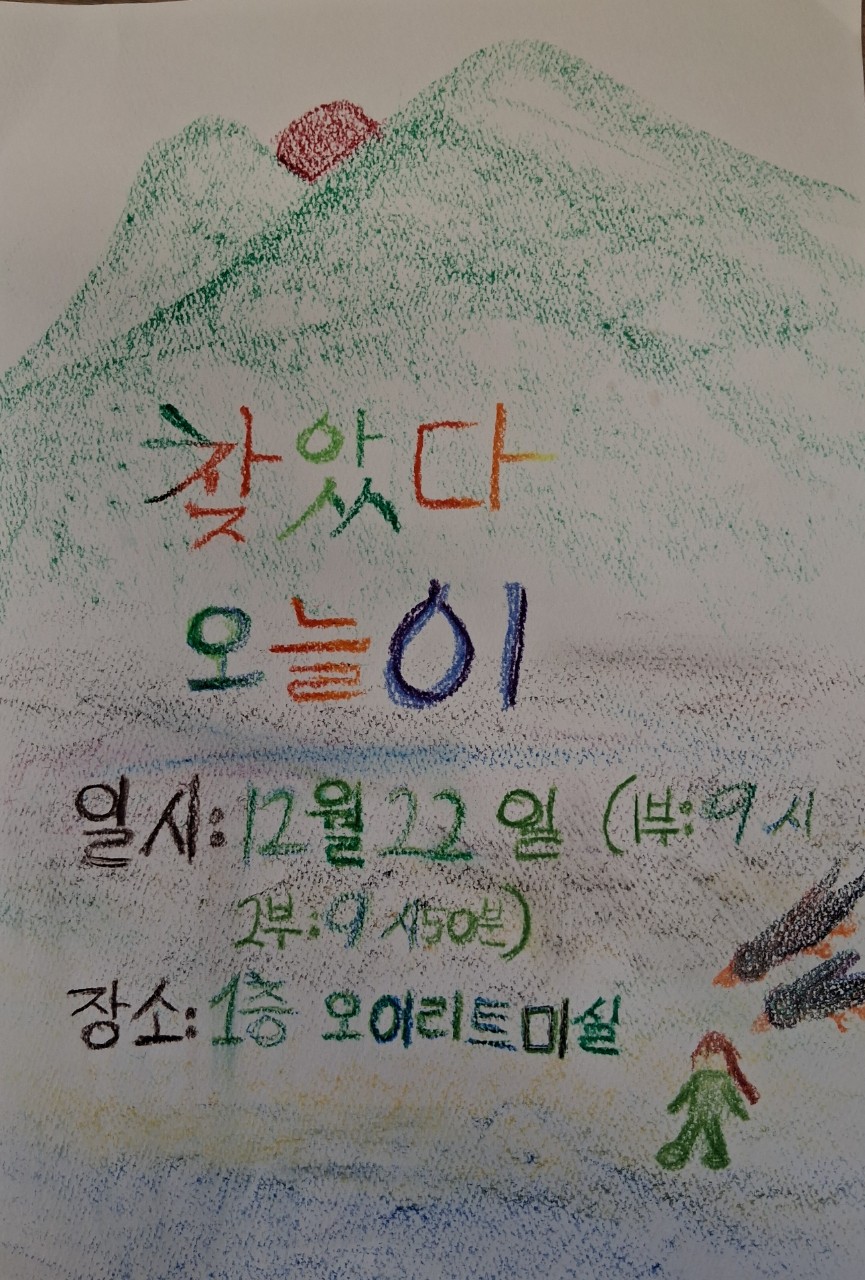 찾았다
오늘이
일시: 12월 22일 (1부: 9시
2부: 9시50분)
장소: 1층 오이리트미실